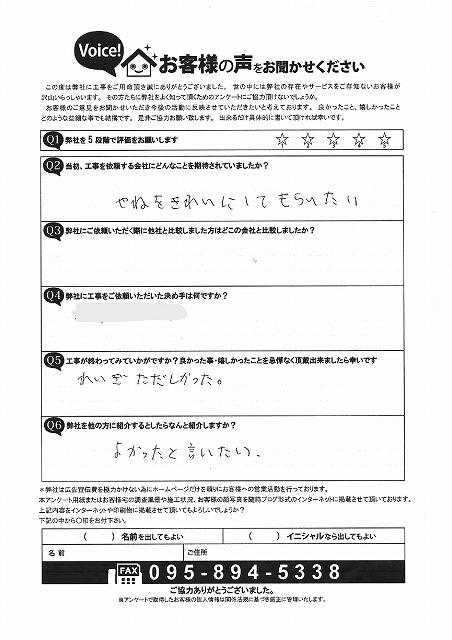 Voice!
お客様の声をお聞かせください
この度は弊社に工事をご用命頂き誠にありがとうございました。 世の中には弊社の存在やサービスをご存知ないお客様が
沢山いらっしゃいます。 その方たちに弊社をよく知って頂くためのアンケートにご協力頂けないでしょうか。
お客様のご意見をお聞かせいただき今後の活動に反映させていただきたいと考えております。 良かったこと、嬉しかったこと
どのような些細な事でも結構です。 是非ご協力お願い致します。 出来るだけ具体的に書いて頂ければ幸いです。
Q1 弊社を5段階で評価をお願いします ☆1 ☆2 ☆3 ☆4 ☆5
Q2 当初、工事を依頼する会社にどんなことを期待されていましたか?
やねをきれいにしてもらいたい
Q3 弊社にご依頼いただく際に他社と比較しました方はどこの会社と比較しましたか?
Q4 弊社に工事をご依頼いただいた決め手は何ですか?
Q5 工事が終わってみていかがですか?良かった事・嬉しかったことを忌憚なく頂戴出来ましたら幸いです
れいぎただしかった。
Q6 弊社を他の方に紹介するとしたらなんと紹介しますか?
よかったと言いたい、
＊弊社は広告宣伝費を極力かけない為にホームページだけを頼りにお客様への営業活動を行っております。
本アンケート用紙またはお客様宅の調査風景や施工状況、お客様の顔写真を随時ブログ形式のインターネットに掲載させて頂いております。
上記内容をインターネットや印刷物に掲載させて頂いてもよろしいでしょうか?
下記の中から〇印をお付下さい。
( )名前を出してもよい ( )イニシャルなら出してもよい
名前 ご住所
FAX 095-894-5338
ご協力ありがとうございました。
当アンケートで取得したお客様の個人情報は関係法規に基づき厳正に管理いたします。